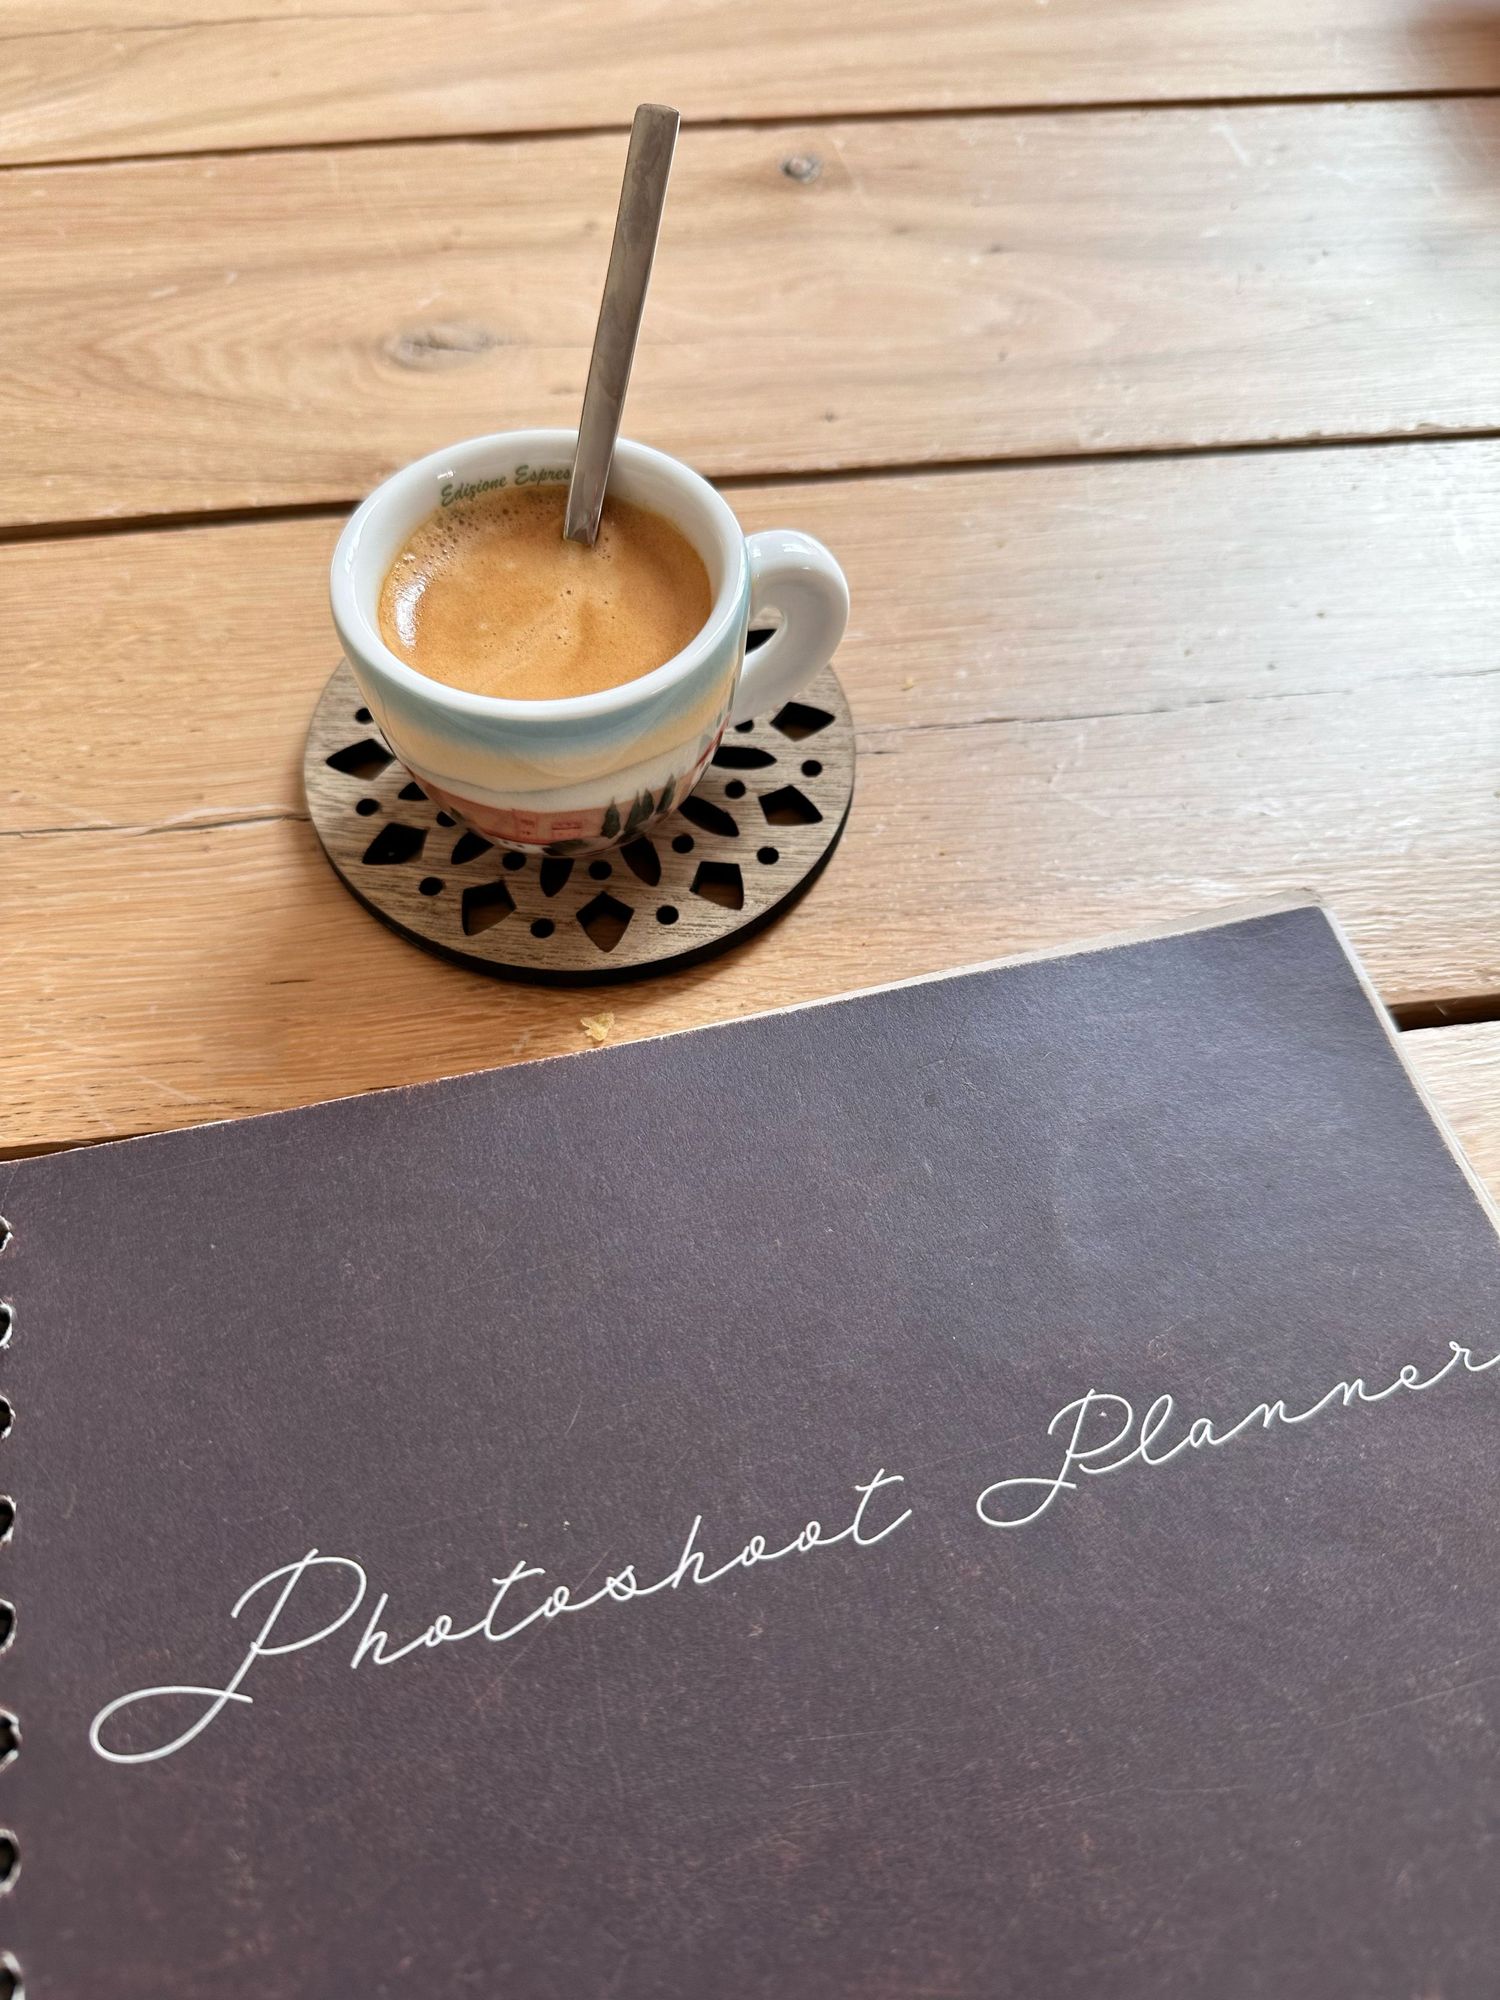 Edizione Espres
Photoshoot Planner